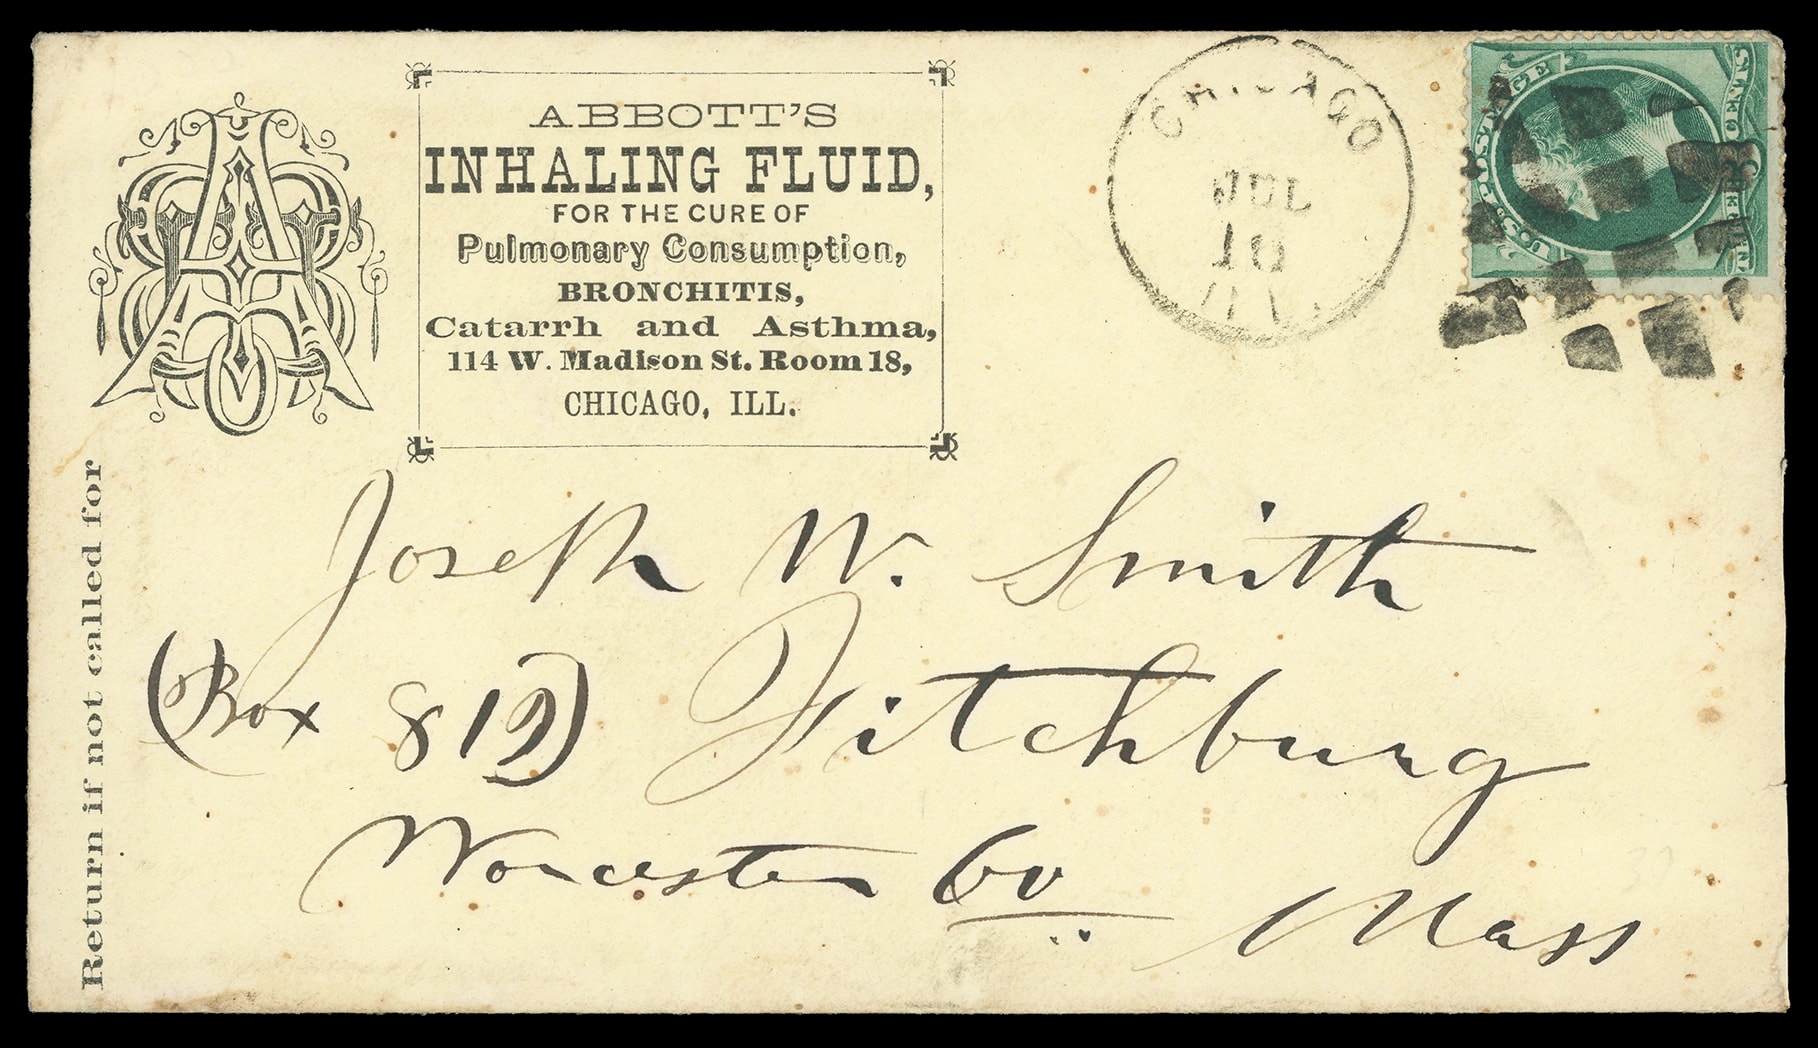 ABBOTT'S
INHALING FLUID,
FOR THE CURE OF
Pulmonary Consumption,
BRONCHITIS,
Catarrh and Asthma,
114 W. Madison St. Room 18,
CHICAGO, ILL.
Return if not called for
CHICAGO
JUL
ILL.
U.S. POSTAGE
Joseph W. Smith
(Box 819) Fitchburg
Worcester Co
Mass